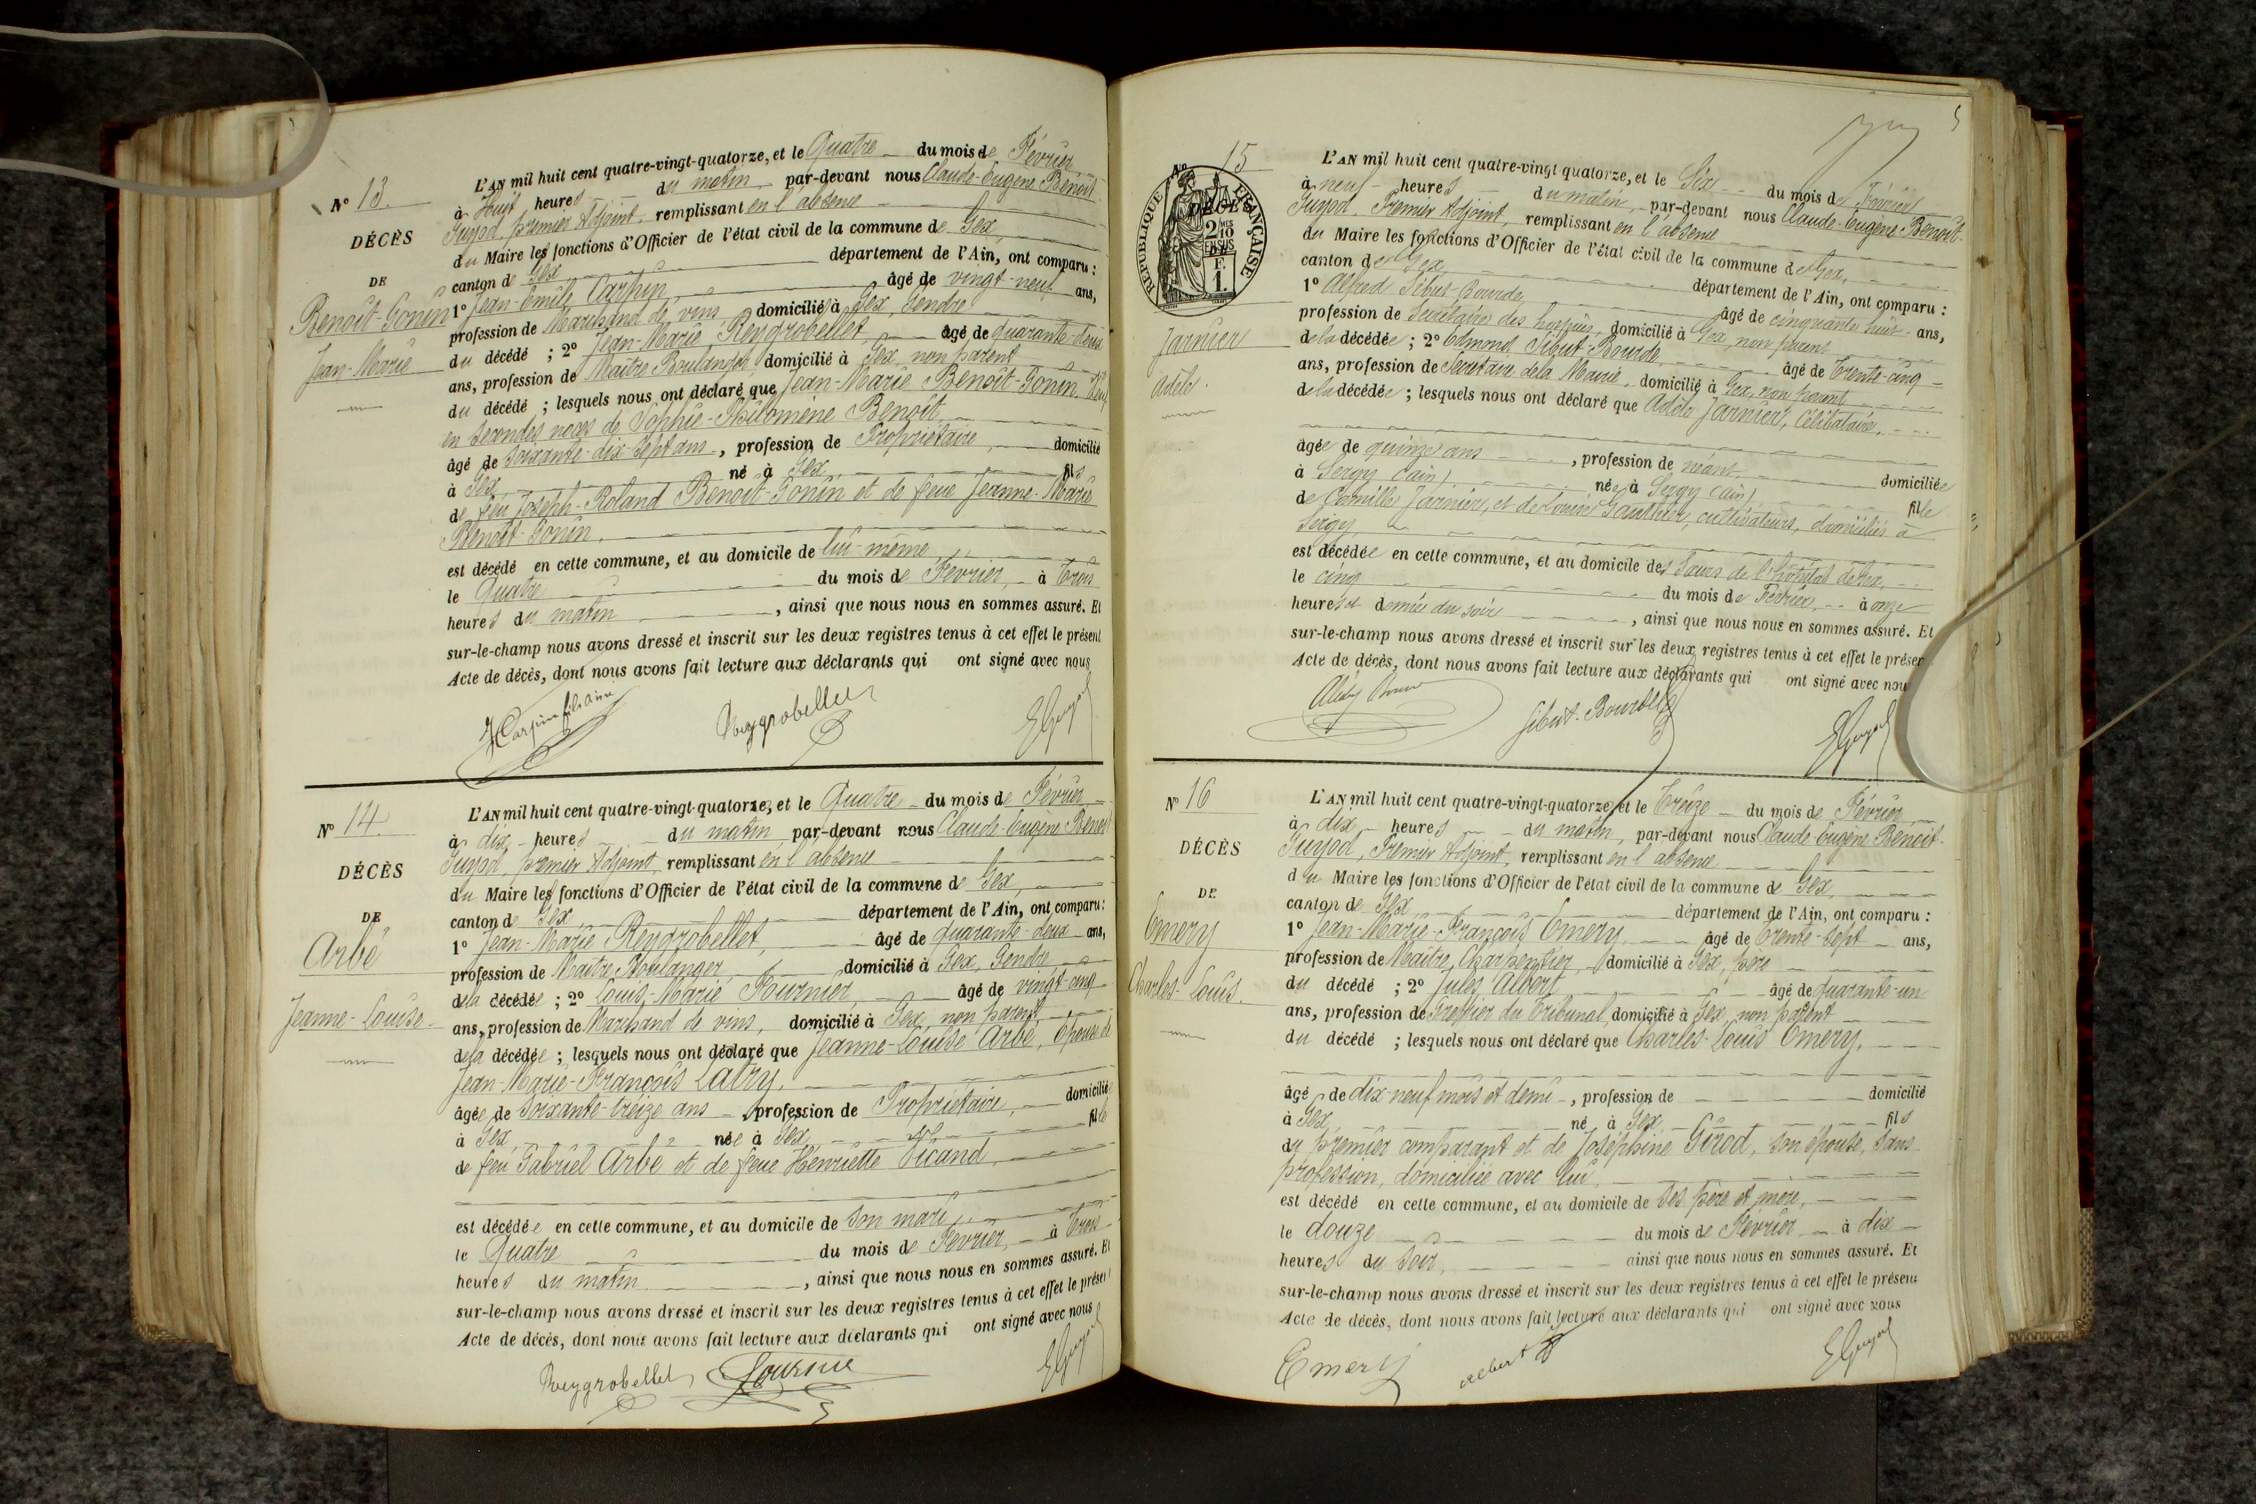 N° 13.
DÉCÈS
DE
Benoît-Gonin
Jean-Marie
L'AN mil huit cent quatre-vingt-quatorze, et le Quatre du mois de Février
à Huit heures du matin par-devant nous Claude-Eugène-Benoit
Guyod, premier Adjoint, remplissant en l'absence
du Maire les fonctions d'Officier de l'état civil de la commune de Gex,
canton de Gex département de l'Ain, ont comparu :
1° Jean-Emile Carpin âgé de vingt-neuf ans,
profession de Marchand de vins domicilié à Gex, Gendre
du décédé ; 2° Jean-Marie Reygrobellet, âgé de quarante-deux
ans, profession de Maître Boulanger, domicilié à Gex, non parent
du décédé ; lesquels nous ont déclaré que Jean-Marie Benoît-Gonin, Veuf
en secondes noces de Sophie-Philomène Benoît
âgé de soixante-dix-sept ans, profession de Propriétaire, domicilié
à Gex né à Gex, fils
de feu Joseph-Roland Benoît-Gonin et de feue Jeanne-Marie
Benoît-Gonin,
est décédé en cette commune, et au domicile de lui-même,
le Quatre du mois de Février, à trois
heures du matin, ainsi que nous nous en sommes assuré. Et
sur-le-champ nous avons dressé et inscrit sur les deux registres tenus à cet effet le présent
Acte de décès, dont nous avons fait lecture aux déclarants qui ont signé avec nous
Reygrobellet
EGuyod
N° 14.
DÉCÈS
DE
Arbé
Jeanne-Louise.
L'AN mil huit cent quatre-vingt-quatorze, et le Quatre du mois de Février
à dix heures du matin par-devant nous Claude-Eugène Benoit
Guyod, premier Adjoint, remplissant en l'absence
du Maire les fonctions d'Officier de l'état civil de la commune de Gex,
canton de Gex département de l'Ain, ont comparu :
1° Jean-Marie Reygrobellet, âgé de quarante-deux ans,
profession de Maître Boulanger, domicilié à Gex, Gendre
de la décédée ; 2° Louis-Marie Fournier, âgé de vingt-cinq
ans, profession de Marchand de vins, domicilié à Gex, non parent
de la décédée ; lesquels nous ont déclaré que Jeanne-Louise Arbé, épouse de
Jean-Marie-François Latry,
âgée de soixante-treize ans, profession de Propriétaire, domiciliée
à Gex née à Gex, fille
de feu Gabriel Arbé et de feue Henriette Vicand,
est décédée en cette commune, et au domicile de son mari,
le Quatre du mois de Février, à trois
heures du matin, ainsi que nous nous en sommes assuré. Et
sur-le-champ nous avons dressé et inscrit sur les deux registres tenus à cet effet le présent
Acte de décès, dont nous avons fait lecture aux déclarants qui ont signé avec nous
Reygrobellet Fournier
EGuyod
5
N° 15
DÉCÈS
RÉPUBLIQUE FRANÇAISE
2/10 EN SUS
F. 1.
Jarnier
Adèle.
L'AN mil huit cent quatre-vingt quatorze, et le Six du mois de Février
à neuf heures du matin, par-devant nous Claude-Eugène-Benoît
Guyod, Premier Adjoint, remplissant en l'absence
du Maire les fonctions d'Officier de l'état civil de la commune de Gex,
canton de Gex département de l'Ain, ont comparu :
1° Alfred Sibut-Bourde, âgé de cinquante huit ans,
profession de Secrétaire des hospices, domicilié à Gex, non parent
de la décédée ; 2° Edmond Sibut-Bourde, âgé de trente-cinq
ans, profession de Secrétaire de la Mairie, domicilié à Gex, non parent
de la décédée ; lesquels nous ont déclaré que Adèle Jarnier, Célibataire,
âgée de quinze ans, profession de néant domiciliée
à Sergy (Ain) née à Sergy (Ain) fille
de Camille Jarnier, et de Louise Gauthier, cultivateurs, domiciliés à
Sergy,
est décédée en cette commune, et au domicile des Sœurs de l'hôpital de Gex,
le cinq du mois de Février, à onze
heures et demie du soir, ainsi que nous nous en sommes assuré. Et
sur-le-champ nous avons dressé et inscrit sur les deux registres tenus à cet effet le présen
Acte de décès, dont nous avons fait lecture aux déclarants qui ont signé avec nou
Sibut-Bourde
EGuyod
N° 16
DÉCÈS
DE
Emery
Charles-Louis.
L'AN mil huit cent quatre-vingt-quatorze, et le treize du mois de Février
à dix heures du matin, par-devant nous Claude Eugène Benoit
Guyod, Premier Adjoint, remplissant en l'absence
du Maire les fonctions d'Officier de l'état civil de la commune de Gex,
canton de Gex département de l'Ain, ont comparu :
1° Jean-Marie-François Emery âgé de trente-sept ans,
profession de Maître Charpentier, domicilié à Gex, père
du décédé ; 2° Jules Albert âgé de quarante-un
ans, profession de Greffier du Tribunal, domicilié à Gex, non parent
du décédé ; lesquels nous ont déclaré que Charles-Louis Emery,
âgé de dix-neuf mois et demi, profession de domicilié
à Gex, né à Gex, fils
du premier comparant et de Joséphine Girod, son épouse, sans
profession, domiciliée avec lui,
est décédé en cette commune, et au domicile de ses père et mère,
le douze du mois de Février à dix
heures du soir, ainsi que nous nous en sommes assuré. Et
sur-le-champ nous avons dressé et inscrit sur les deux registres tenus à cet effet le présent
Acte de décès, dont nous avons fait lecture aux déclarants qui ont signé avec nous
Emery albert
EGuyod